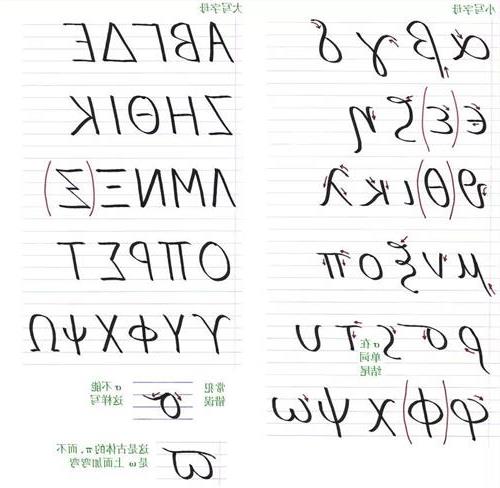 小写字母
α β γ δ
ϵ (ε) ζ η
ϑ (θ) ι κ λ
μ ν ξ ο π
ρ σ ς τ υ
ς 在
单词
结尾
φ (ϕ) χ ψ ω
大写字母
Α Β Γ Δ Ε
Ζ Η Θ Ι Κ
Λ Μ Ν Ξ (Ξ)
Ο Π Ρ Σ Τ
ϒ Υ Φ Χ Ψ Ω
常犯
错误
σ
σ 不能
这样写
ϖ
这是古体的 π,而不
是 ω 上面加弯弯